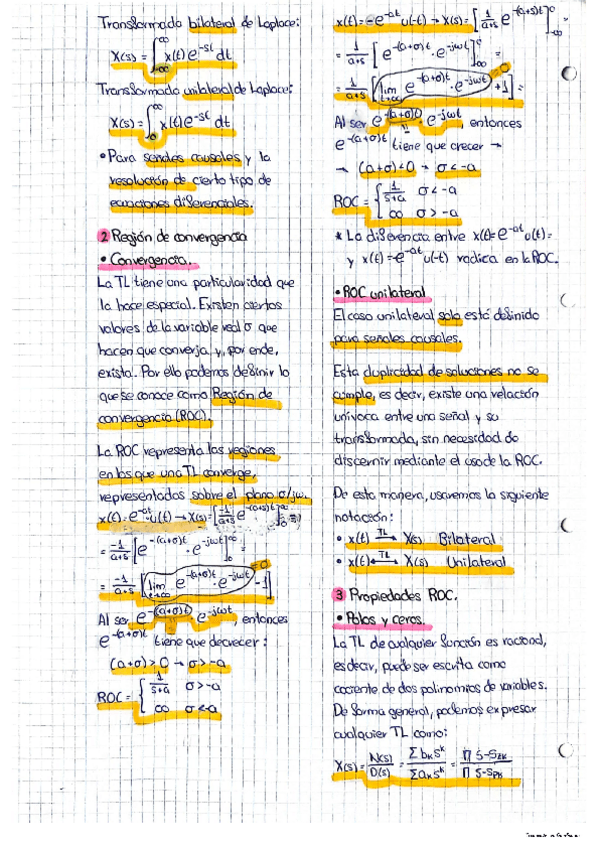 Transformada bilateral de Laplace:
X(s) = ∫_{-∞}^{∞} x(t) e^{-st} dt
Transformada unilateral de Laplace:
X(s) = ∫_{0}^{∞} x(t) e^{-st} dt
• Para señales causales y la
resolución de cierto tipo de
ecuaciones diferenciales.
2 Región de convergencia
• Convergencia.
La TL tiene una particularidad que
la hace especial. Existen ciertos
valores de la variable real σ que
hacen que converja, y, por ende,
exista. Por ello podemos definir lo
que se conoce como Región de
convergencia (ROC).
La ROC representa las regiones
en los que una TL converge,
representados sobre el plano σ/jω.
x(t) = e^{-at} u(t) → X(s) = [-1/(a+s) e^{-(a+s)t}]_0^∞ =
= -1/(a+s) [e^{-(a+σ)t} · e^{-jωt}]_0^∞ =
= -1/(a+s) [lim_{t→∞} e^{-(a+σ)t} · e^{-jωt} - 1] = 0
Al ser e^{-(a+σ)t} · e^{-jωt}, entonces
e^{-(a+σ)t} tiene que decrecer:
(a+σ) > 0 → σ > -a
ROC = { 1/(s+a) σ > -a
∞ σ < -a
x(t) = -e^{-at} u(-t) → X(s) = [1/(a+s) e^{-(a+s)t}]_{-∞}^0 =
= 1/(a+s) [e^{-(a+σ)t} · e^{-jωt}]_{-∞}^0 =
= 1/(a+s) [lim_{t→∞} e^{-(a+σ)t} · e^{-jωt} + 1] = 0
Al ser e^{-(a+σ)t} e^{-jωt}, entonces
e^{-(a+σ)t} tiene que crecer →
→ (a+σ) < 0 → σ < -a
ROC = { 1/(s+a) σ < -a
∞ σ > -a
* La diferencia entre x(t) = e^{-at} u(t) =
y x(t) = -e^{-at} u(-t) radica en la ROC.
• ROC unilateral
El caso unilateral solo está definido
para señales causales.
Esta duplicidad de soluciones no se
cumple, es decir, existe una relación
unívoca entre una señal y su
transformada, sin necesidad de
discernir mediante el uso de la ROC.
De esta manera, usaremos la siguiente
notación:
• x(t) —TL→ X(s) Bilateral
• x(t) ←TL→ X(s) Unilateral
3 Propiedades ROC.
• Polos y ceros.
La TL de cualquier función es racional,
es decir, puede ser escrita como
cociente de dos polinomios de variables.
De forma general, podemos expresar
cualquier TL como:
X(s) = N(s)/D(s) = Σ b_k s^k / Σ a_k s^k = Π s-s_{zk} / Π s-s_{pk}